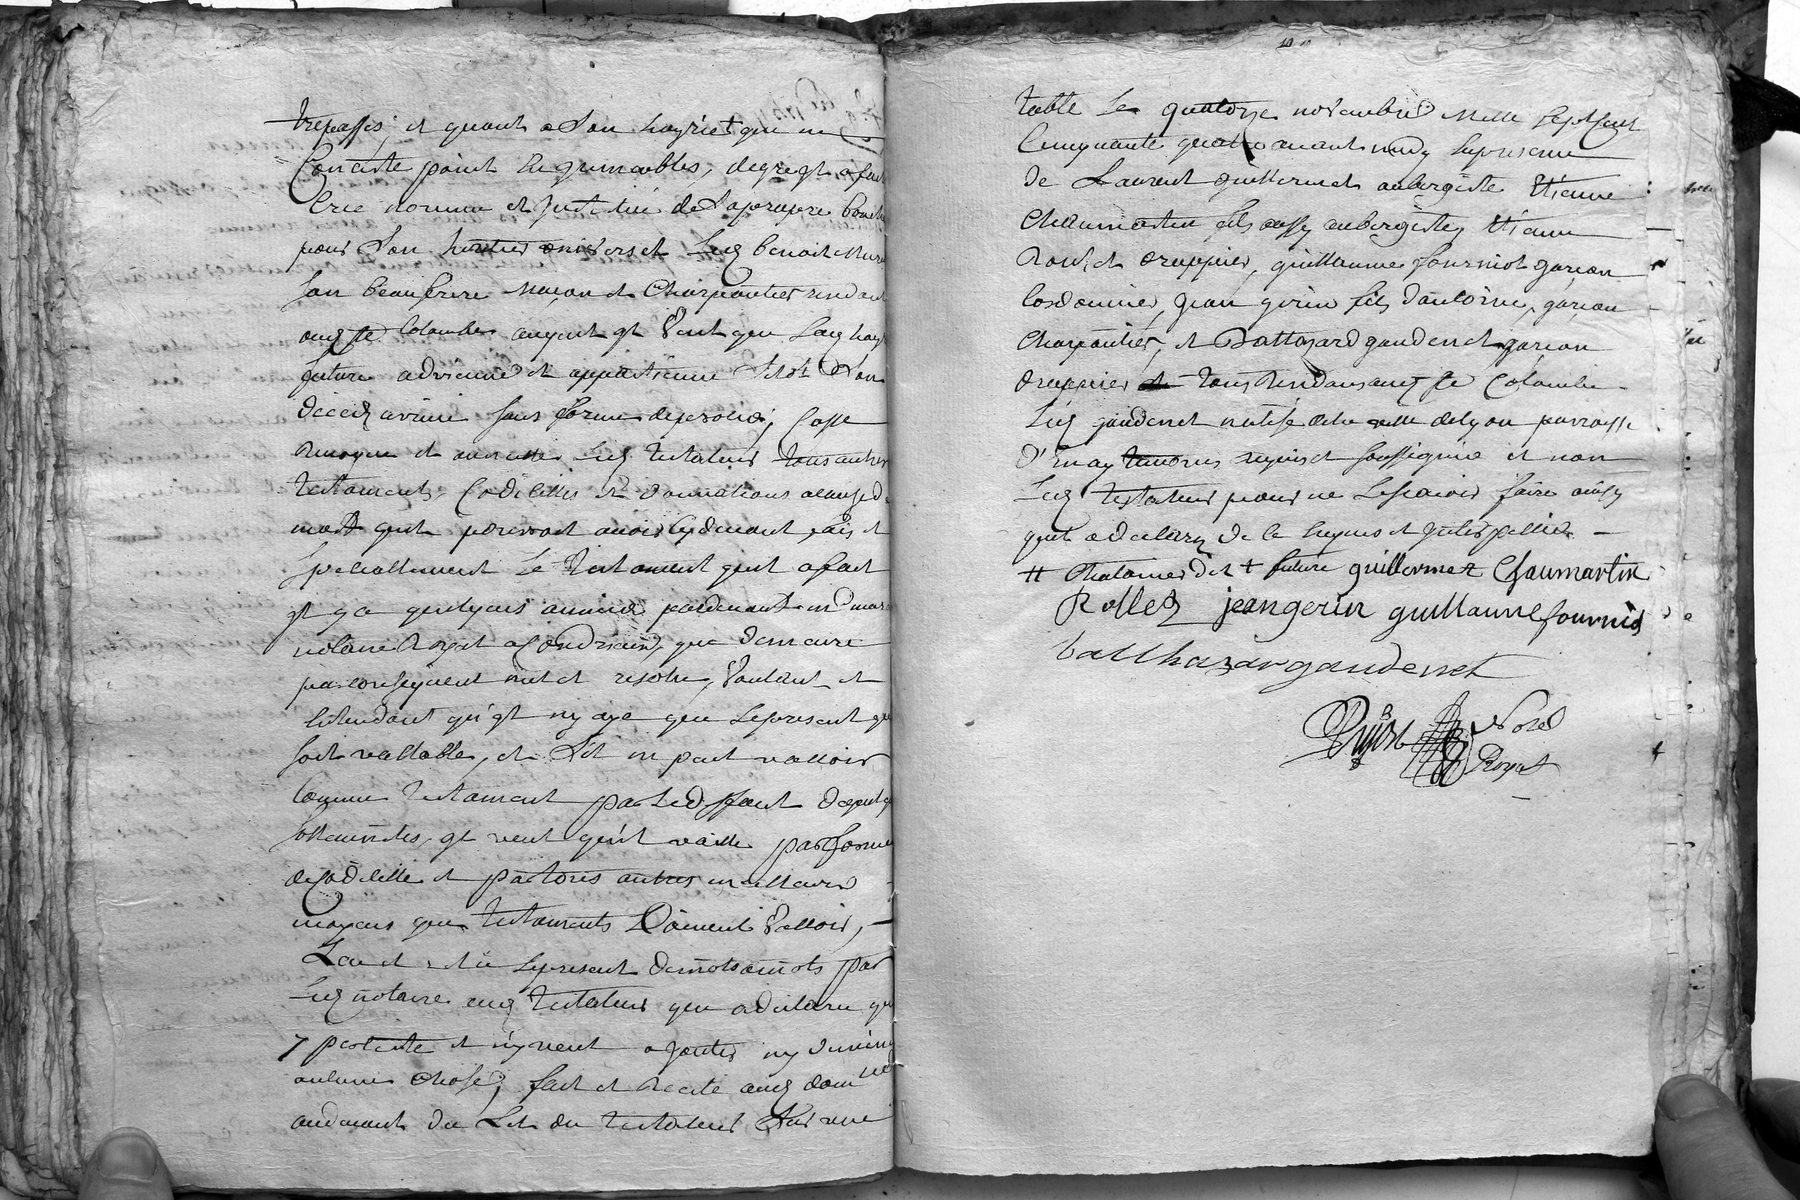 trepassés, et quant a son hoyrie + que ne
Conciste point en immeubles, de gré il a fait
Crée nommé et Institué de sa propre bouche
pour son heritier universel led benoit
son beaufrere maçon et Charpentier rendant
aud ste Colombe auquel il veut que sad hoy
future advienne et appartienne sitot son
déced arrivé sans forme de procés, Casse
revoque et annulle led testateur tous autres
testaments, Codicilles et donnations a cause de
mort qu'il pourroit avoir cy devant fais et
specialement le testament qu'il a fait
il y a quelques années pardevant me
notaire Royal a Condrieux, que demeure
par consequent nul et resolu, voulant et
entendant qu'il ny aye que le present qui
soit vallable, et s'il ne peut valloir
Comme testament par le deffaut de quelq
sollemnités, il veut qu'il vaille par forme
de Codicille et par tous autres meilleurs
moyens que testaments doivent valloir,
Lu et relu le present de mots a mots par
led notaire aud testateur que a declaré qu
y persiste et n'y veut ajouter ny diminuer
aucune chose, fait et recité aud domlle
au devant du Lit du testateur sur une
table le quatorze novembre mille sept cent
Cinquante quatre avant midy en presence
de Laurent guillermet aubergiste Etienne
Chaumartin fils aussy aubergiste, Etienne
Rollet drappier, guillaume fourniot garçon
Cordonnier, jean gerin fils d'antoine, garçon
Charpentier, et Baltazard gaudenet garçon
drappier tous rendans aud ste Colombe
led gaudenet natif de la ville de lyon parroisse
d'Enay temoins requis et soussignés et non
led testateur pour ne le sçavoir faire ainsy
qu'il a declaré de ce enquis et interpellé
+ future guillermet Chaumartin
Rollet jean gerin guillaume fournio
balthazar gaudenet
Noré
Royal